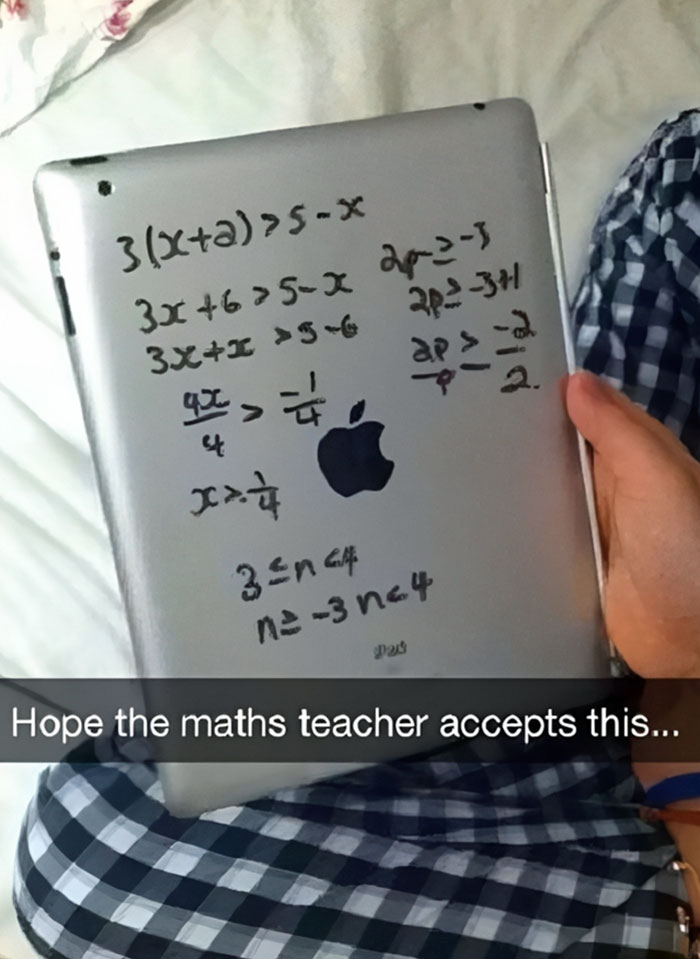 3(x+2)>5-x
3x+6>5-x
3x+x >5-6
4x/4 > -1/4
x>-1/4
2p≥-3
2p≥-3+1
-2/2.
3≤n<4
n≥-3 n<4
iPad
Hope the maths teacher accepts this...